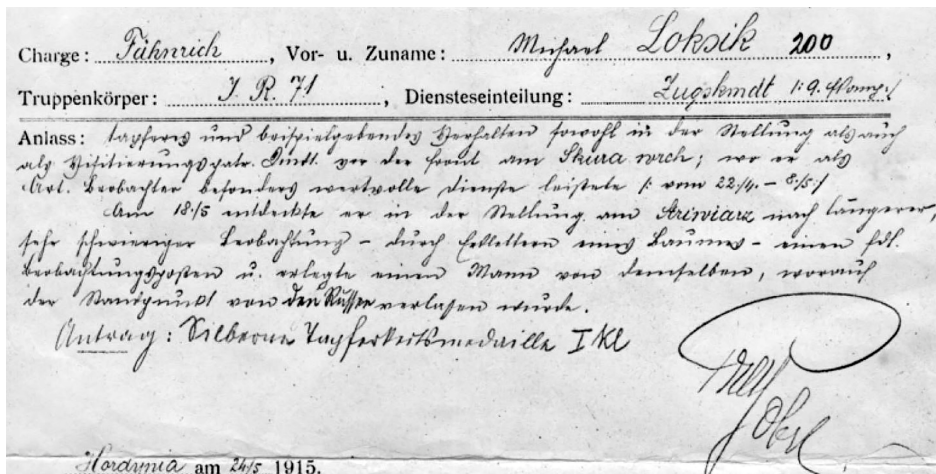 Charge: Fähnrich, Vor- u. Zuname: Michael Loksik 200,
Truppenkörper: J. R. 71, Diensteseinteilung: Zugskmdt /:9. Komp:/
Anlass: Tapferes und beispielgebendes Verhalten sowohl in der Stellung als auch
als Visitierungspatr. Kmdt. vor der Front am Skura wrch; wo er als
Art. Beobachter besonders wertvolle Dienste leistete /: vom 22./4. – 8./5:/
Am 18./5 entdeckte er in der Stellung am nach längerer,
sehr schwieriger Beobachtung – durch Erklettern eines Baumes – einen fdl.
Beobachtungsposten u. erlegte einen Mann von demselben, worauf
der Standpunkt von den Russen verlassen wurde.
Antrag: Silberne Tapferkeitsmedaille I Kl
Obst
Hordynia am 24/5 1915.